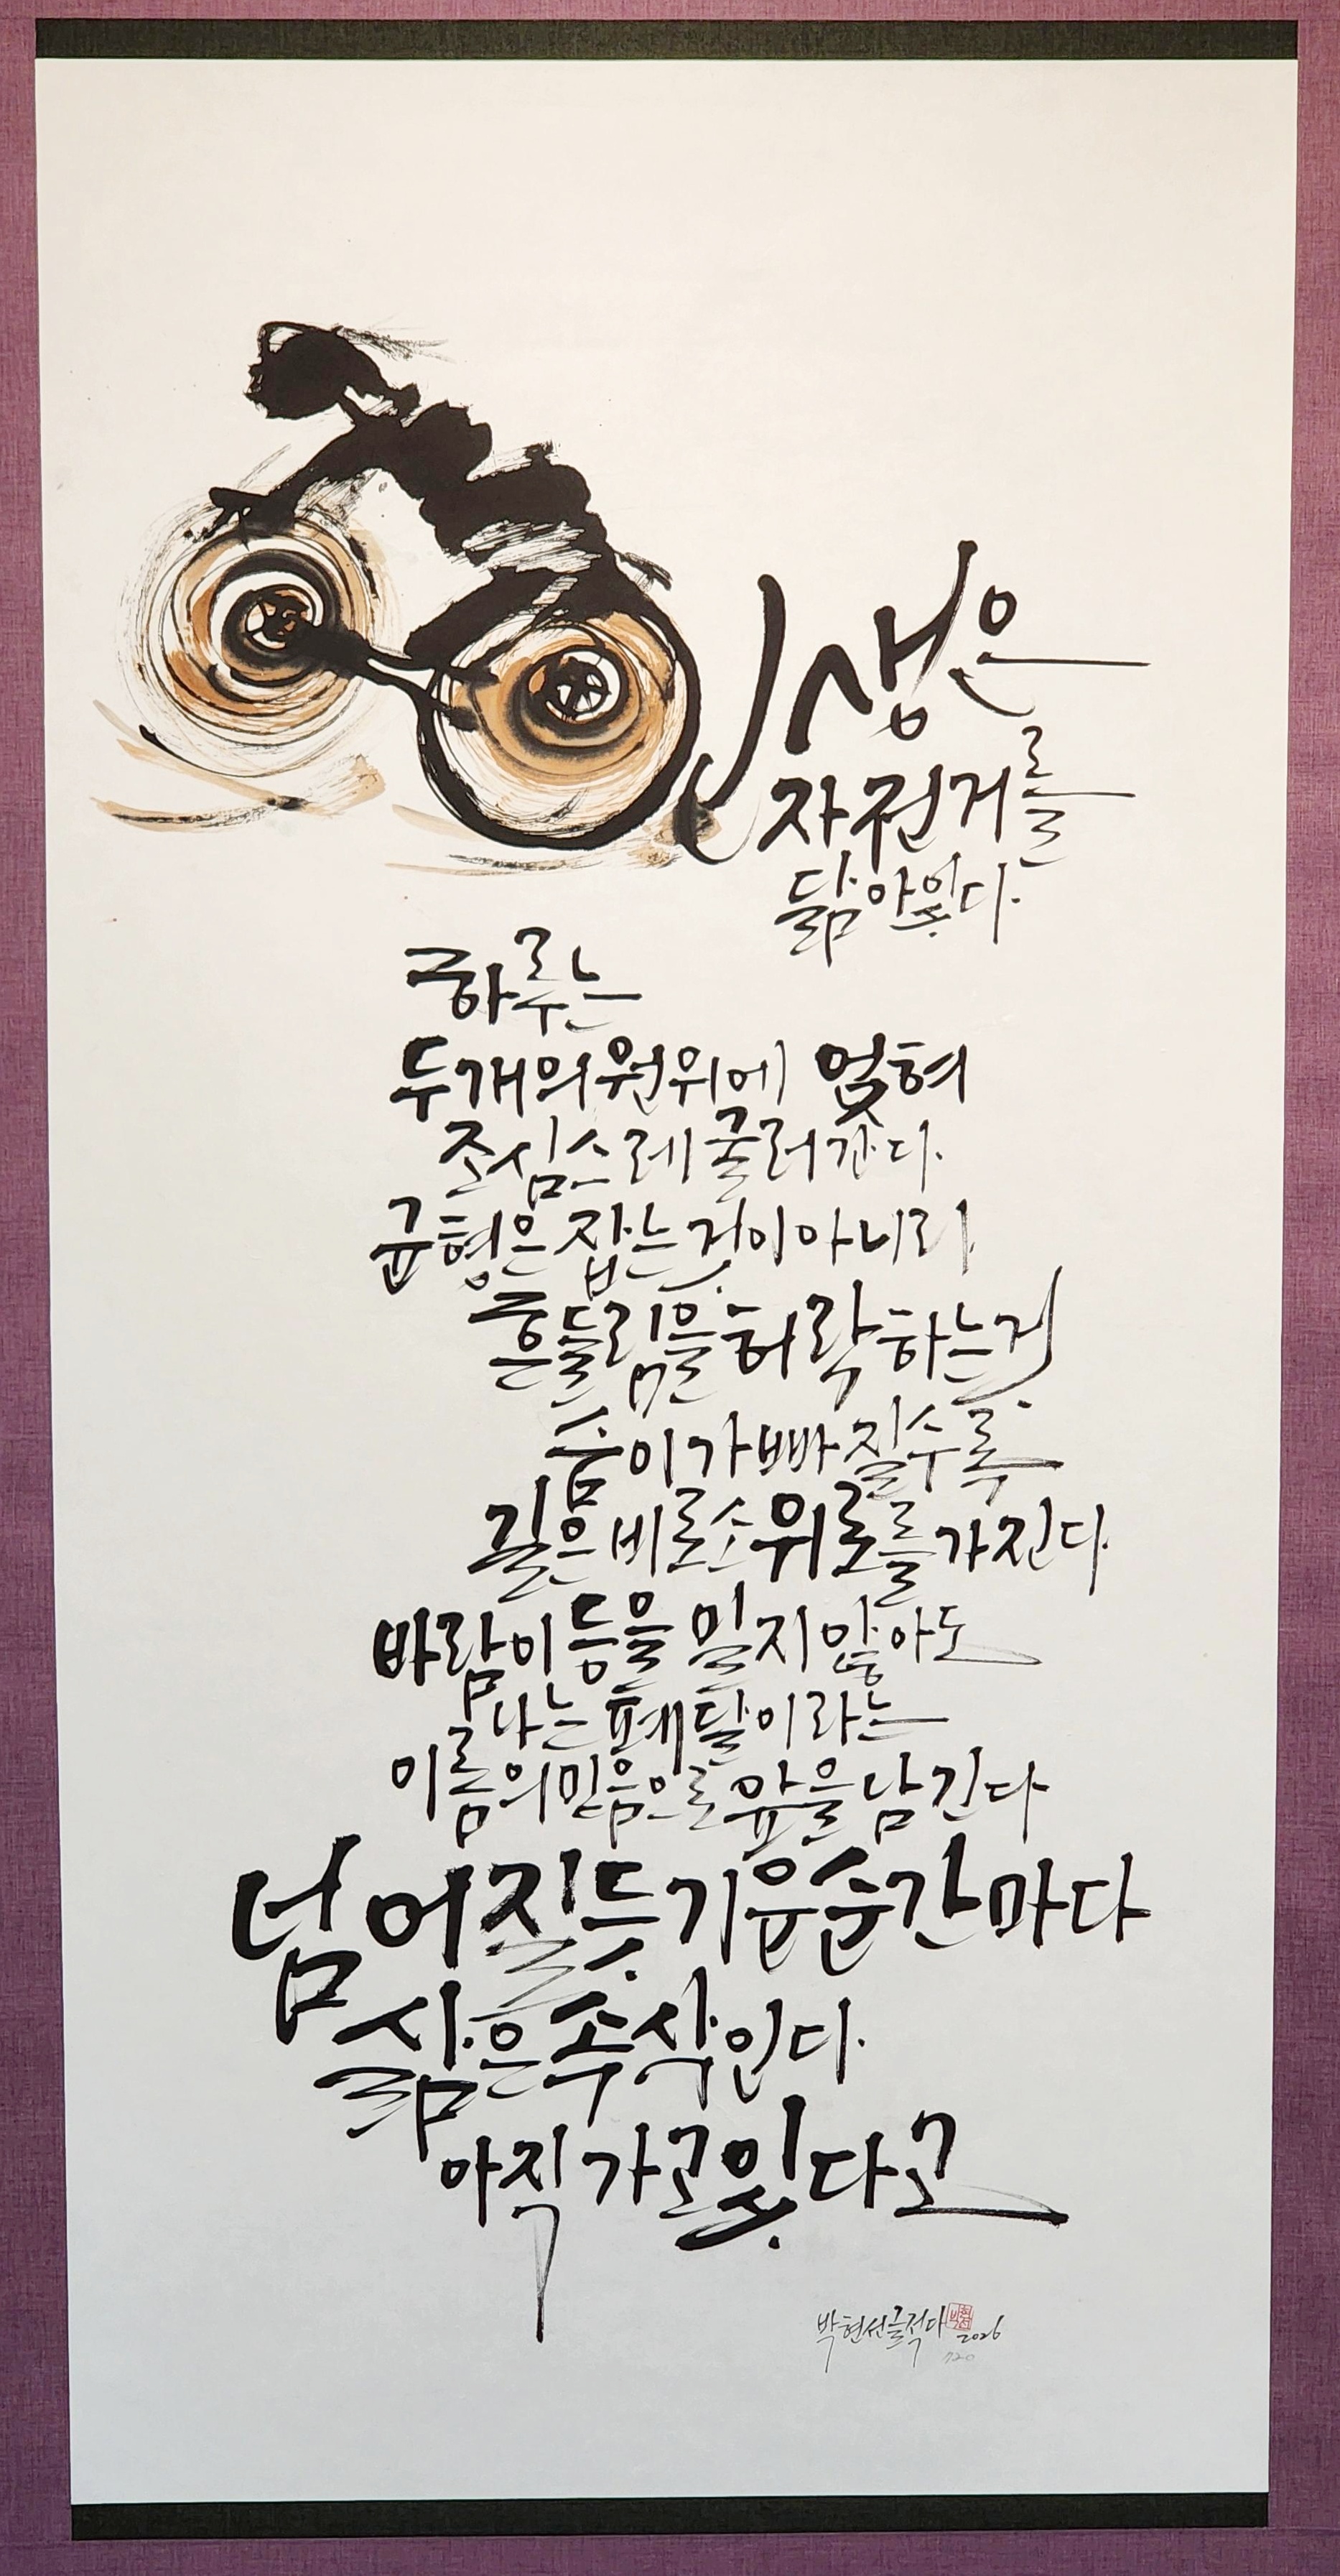 인생은
자전거를
닮아있다.
하루는
두개의원위에 얹혀
조심스레굴러간다.
균형은잡는것이아니라
흔들림을허락하는것
숨이가빠질수록
길은비로소위로를가진다.
바람이등을 밀지않아도
나는페달이라는
이름의믿음으로앞을남긴다
넘어질듯기운순간마다
삶은속삭인다.
아직가고있다고
박현선글적다 2026